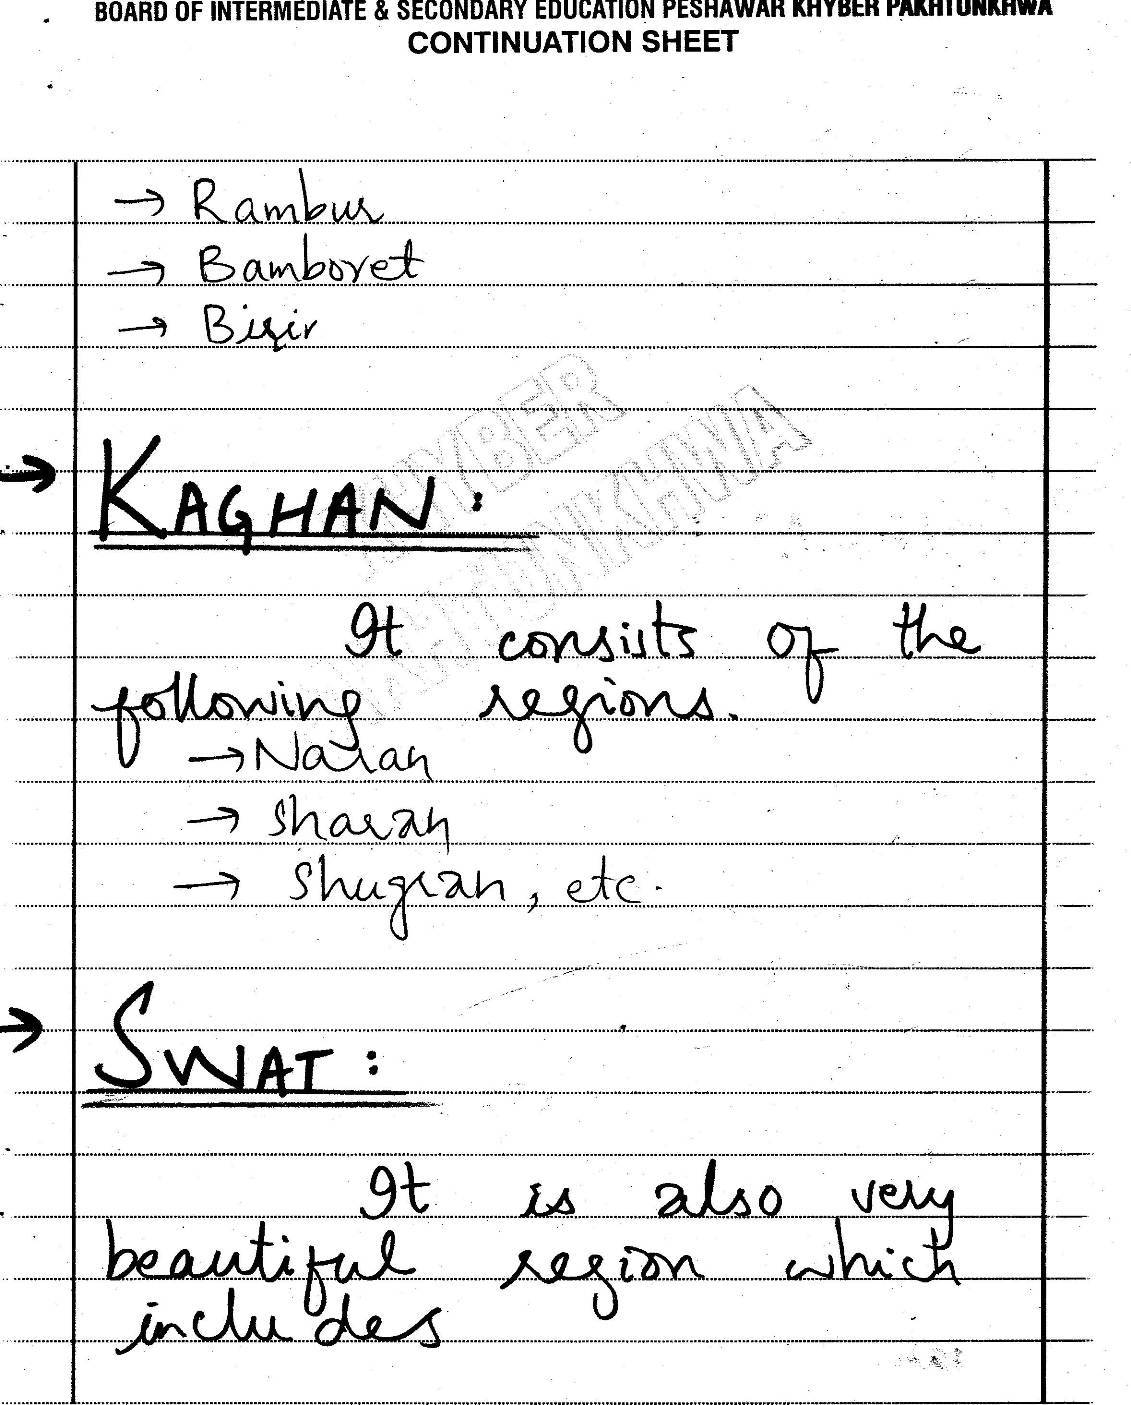 BOARD OF INTERMEDIATE & SECONDARY EDUCATION PESHAWAR KHYBER PAKHTUNKHWA
CONTINUATION SHEET
→ Rambur
→ Bamboret
→ Birir
KHYBER
PAKHTUNKHWA
→ KAGHAN:
It consists of the
following regions.
→ Naran
→ Sharan
→ Shugran, etc.
→ SWAT:
It is also very
beautiful region which
includes